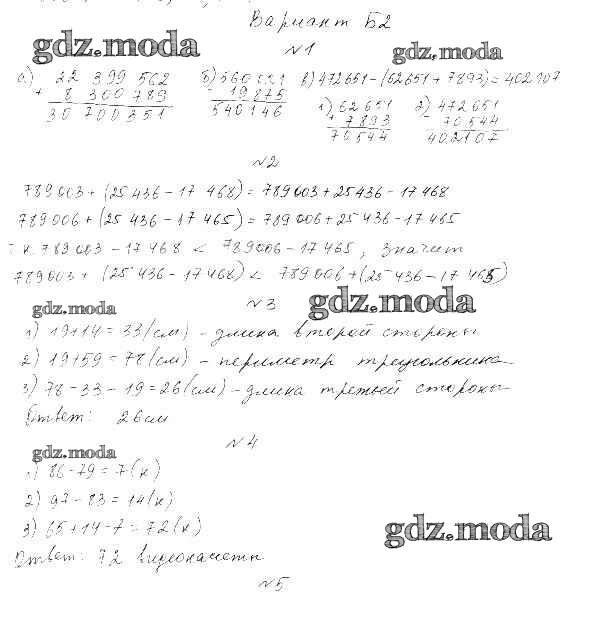 Вариант Б2
gdz.moda
№1
gdz.moda
а) 22 399 562 б) 560 021 в) 472651-(62651+7893)=402107
+ 8 300 789 - 19 875 1) 62651 2) 472651
30 700 351 540 146 + 7893 - 70544
70544 402107
№2
789003+(25436-17 468)=789003+25436-17468
789006+(25 436-17 465)=789006+25 436-17465
т.к. 789003-17468 < 789006-17465, значит
789003+(25 436-17468)< 789006+(25 436-17 465)
gdz.moda
№3
gdz.moda
1) 19+14=33(см) - длина второй стороны
2) 19+59=78(см) - периметр треугольника
3) 78-33-19=26(см) - длина третьей стороны
Ответ: 26см
№4
gdz.moda
1) 86-79=7(к)
2) 97-83=14(к)
3) 65+14-7=72(к)
gdz.moda
Ответ: 72 видеокассеты
№5